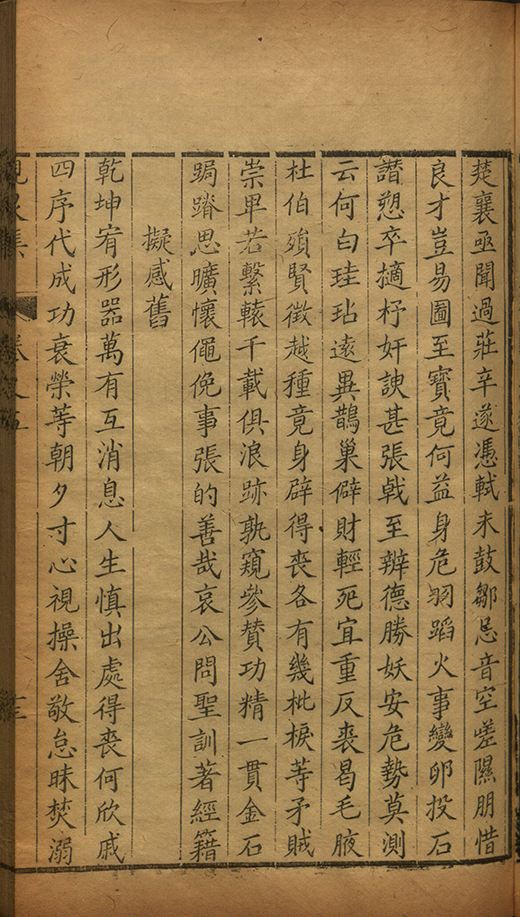 楚襄亟聞過莊辛遂憑軾未鼓鄒忌音空嗟隰朋惜
良才豈易圖至寶竟何益身危羽蹈火事變卵投石
譖愬卒擿杼奸諛甚張戟至辨德勝妖安危勢莫測
云何白珪玷遠異鵲巢僻財輕死宜重反裘曷毛腋
杜伯殞賢徵越種竟身辟得喪各有幾枇棙等矛賊
崇卑若繫轅千載俱浪跡孰窺參贊功精一貫金石
跼蹐思曠懷僶俛事張的善哉哀公問聖訓著經籍
擬感舊
乾坤宥形器萬有互消息人生慎出處得喪何欣戚
四序代成功衰榮等朝夕寸心視操舍敬怠昧焚溺